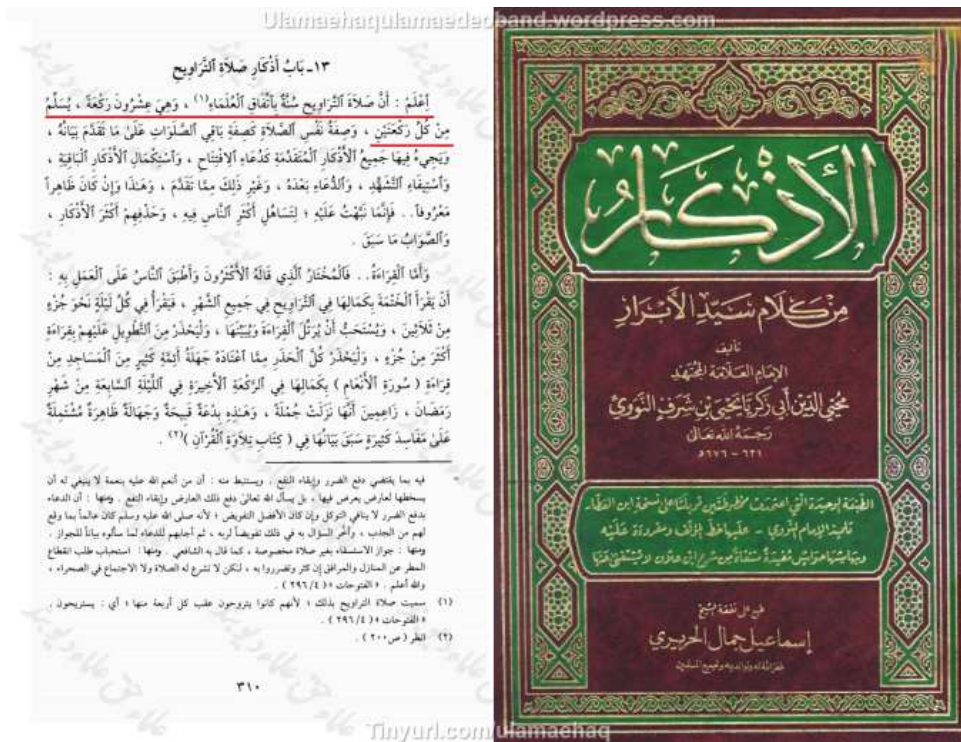 Ulamaehaqulamaedeoband.wordpress.com
١٣ـ بَابُ أَذْكَارِ صَلَاةِ ٱلتَّرَاوِيحِ
اِعْلَمْ : أَنَّ صَلَاةَ ٱلتَّرَاوِيحِ سُنَّةٌ بِٱتِّفَاقِ ٱلْعُلَمَاءِ(١) ، وَهِيَ عِشْرُونَ رَكْعَةً ، يُسَلِّمُ
مِنْ كُلِّ رَكْعَتَيْنِ ، وَصِفَةُ نَفْسِ ٱلصَّلَاةِ كَصِفَةِ بَاقِي ٱلصَّلَوَاتِ عَلَىٰ مَا تَقَدَّمَ بَيَانُهُ ،
وَيَجِيءُ فِيهَا جَمِيعُ ٱلْأَذْكَارِ ٱلْمُتَقَدِّمَةِ كَدُعَاءِ ٱلِافْتِتَاحِ ، وَٱسْتِكْمَالِ ٱلْأَذْكَارِ ٱلْبَاقِيَةِ ،
وَٱسْتِيفَاءِ ٱلتَّشَهُّدِ ، وَٱلدُّعَاءِ بَعْدَهُ ، وَغَيْرِ ذَلِكَ مِمَّا تَقَدَّمَ ، وَهَـٰذَا وَإِنْ كَانَ ظَاهِراً
مَعْرُوفاً . . فَإِنَّمَا نَبَّهْتُ عَلَيْهِ ؛ لِتَسَاهُلِ أَكْثَرِ ٱلنَّاسِ فِيهِ ، وَحَذْفِهِمْ أَكْثَرَ ٱلْأَذْكَارِ ،
وَٱلصَّوَابُ مَا سَبَقَ .
وَأَمَّا ٱلْقِرَاءَةُ . . فَٱلْمُخْتَارُ ٱلَّذِي قَالَهُ ٱلْأَكْثَرُونَ وَأَطْبَقَ ٱلنَّاسُ عَلَى ٱلْعَمَلِ بِهِ :
أَنْ يَقْرَأَ ٱلْخَتْمَةَ بِكَمَالِهَا فِي ٱلتَّرَاوِيحِ فِي جَمِيعِ ٱلشَّهْرِ ، فَيَقْرَأُ فِي كُلِّ لَيْلَةٍ نَحْوَ جُزْءٍ
مِنْ ثَلَاثِينَ ، وَيُسْتَحَبُّ أَنْ يُرَتِّلَ ٱلْقِرَاءَةَ وَيُبَيِّنَهَا ، وَلْيَحْذَرْ مِنَ ٱلتَّطْوِيلِ عَلَيْهِمْ بِقِرَاءَةِ
أَكْثَرَ مِنْ جُزْءٍ ، وَلْيَحْذَرْ كُلَّ ٱلْحَذَرِ مِمَّا ٱعْتَادَهُ جَهَلَةُ أَئِمَّةِ كَثِيرٍ مِنَ ٱلْمَسَاجِدِ مِنْ
قِرَاءَةِ ( سُورَةِ ٱلْأَنْعَامِ ) بِكَمَالِهَا فِي ٱلرَّكْعَةِ ٱلْأَخِيرَةِ فِي ٱللَّيْلَةِ ٱلسَّابِعَةِ مِنْ شَهْرِ
رَمَضَانَ ، زَاعِمِينَ أَنَّهَا نَزَلَتْ جُمْلَةً ، وَهَـٰذِهِ بِدْعَةٌ قَبِيحَةٌ وَجَهَالَةٌ ظَاهِرَةٌ مُشْتَمِلَةٌ
عَلَىٰ مَفَاسِدَ كَثِيرَةٍ سَبَقَ بَيَانُهَا فِي ( كِتَابِ تِلَاوَةِ ٱلْقُرْآنِ )(٢) .
فيه بما يقتضي دفع الضرر وإبقاء النفع . ويستنبط منه : أن من أنعم الله عليه بنعمة لا ينبغي له أن
يسخطها لعارض يعرض فيها ، بل يسأل الله تعالىٰ دفع ذلك العارض وإبقاء النفع . ومنها : أن الدعاء
بدفع الضرر لا ينافي التوكل وإن كان الأفضل التفويض ؛ لأنه صلى الله عليه وسلم كان عالماً بما وقع
لهم من الجدب ، وأخّر السؤال به في ذلك تفويضاً لربه ، ثم أجابهم للدعاء لما سألوه بياناً للجواز .
ومنها : جواز الاستسقاء بغير صلاة مخصوصة ، كما قال به الشافعي . ومنها : استحباب طلب انقطاع
المطر عن المنازل والمرافق إن كثر وتضرروا به ، لكن لا تشرع له الصلاة ولا الاجتماع في الصحراء ،
والله أعلم . « الفتوحات » ( ٢٩٦/٤ ) .
(١) سميت صلاة التراويح بذلك ؛ لأنهم كانوا يتروحون عقب كل أربعة منها ؛ أي : يستريحون .
« الفتوحات » ( ٢٩٦/٤ ) .
(٢) انظر ( ص٢٠٠ ) .
٣١٠
الأذكار
من كلام سيد الأبرار
تأليف
الإمام العلامة المجتهد
محيي الدين أبي زكريا يحيى بن شرف النووي
رحمه الله تعالى
٦٣١ - ٦٧٦هـ
الطبعة الوحيدة التي اعتمدت مخطوطتين قوبلتا على نسخة ابن العطار
تلميذ الإمام النووي - عليها خط المؤلف ومقروءة عليه
وبهامشها حواش مفيدة منتقاة من شرح ابن علان لا يستغنى عنها
طبع على نفقة الشيخ
إسماعيل جمال الحريري
غفر الله له ولوالديه ولجميع المسلمين
Tinyurl.com/ulamaehaq